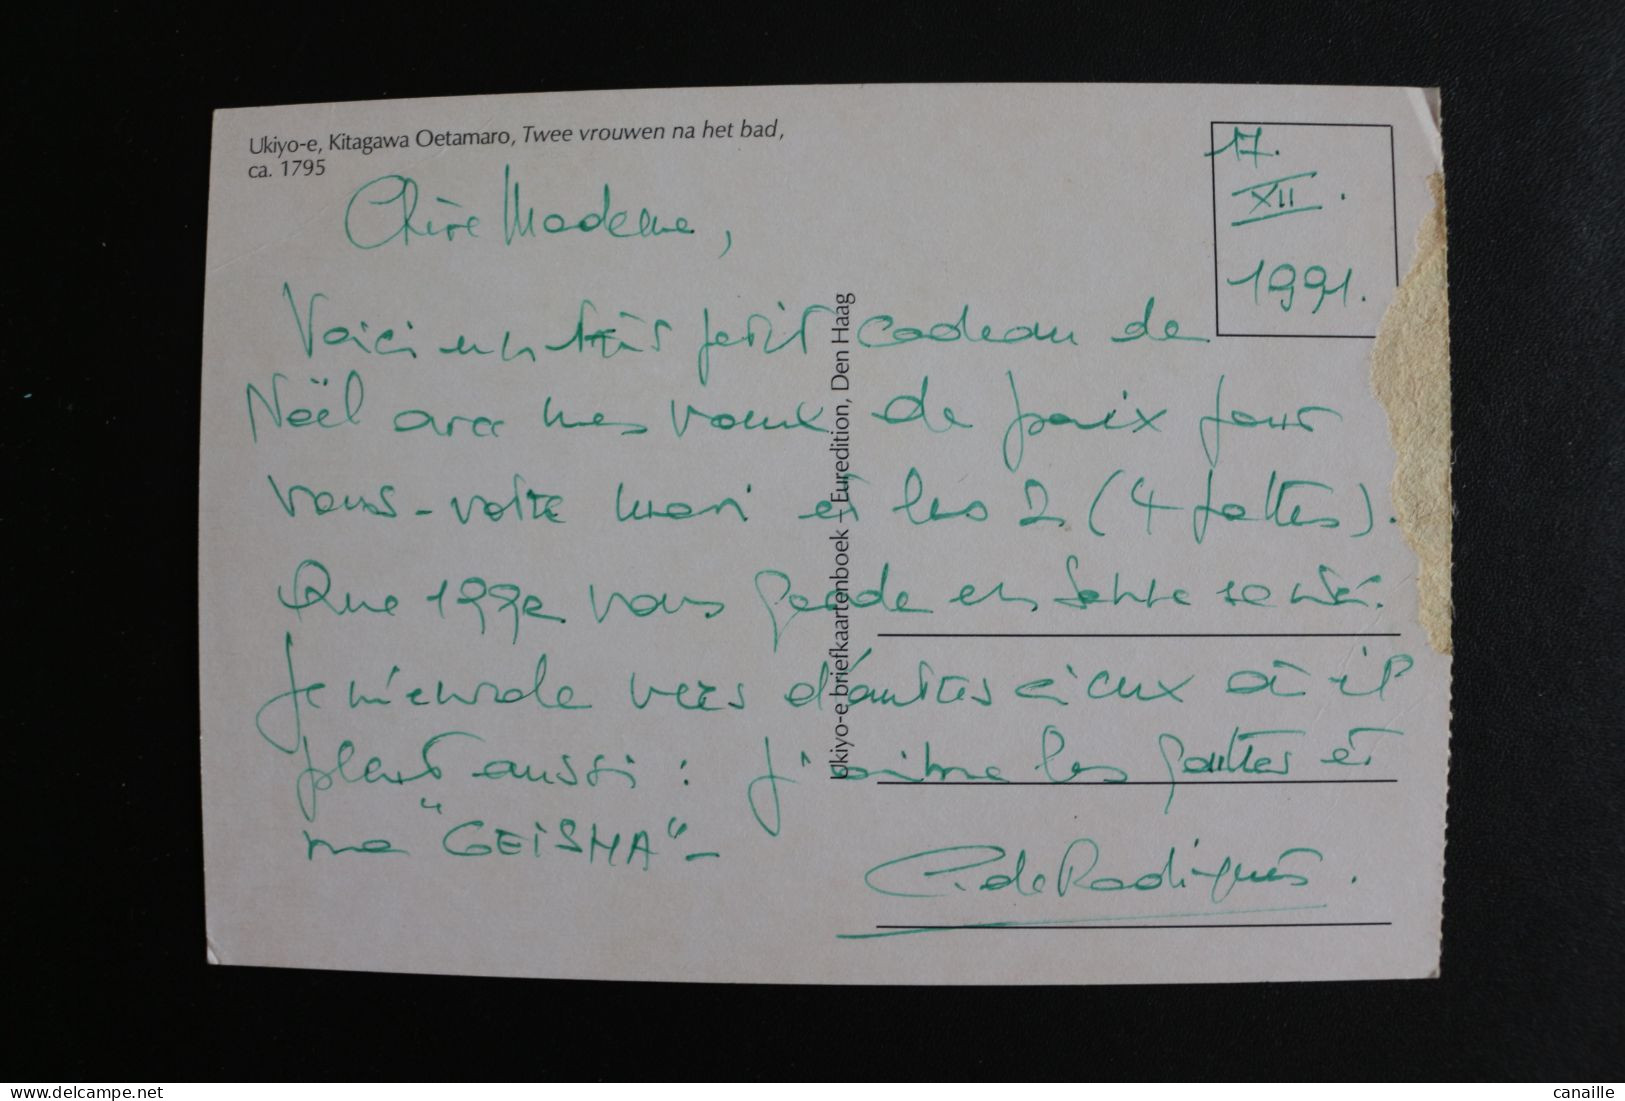 Ukiyo-e, Kitagawa Oetamaro, Twee vrouwen na het bad,
ca. 1795
17.
XII.
1991.
Chère Madame,
Voici un très petit cadeau de
Noël avec mes voeux de paix pour
vous-votre mari et les 2 (4 pattes).
Que 1992 vous garde en bonne santé.
Je m'envole vers d'autres cieux où il
pleut aussi : j'aime les gouttes et
ma "GEISHA" -
C. de Radiguès.
Ukiyo-e briefkaartenboek – Euredition, Den Haag
delcampe.net
canaille